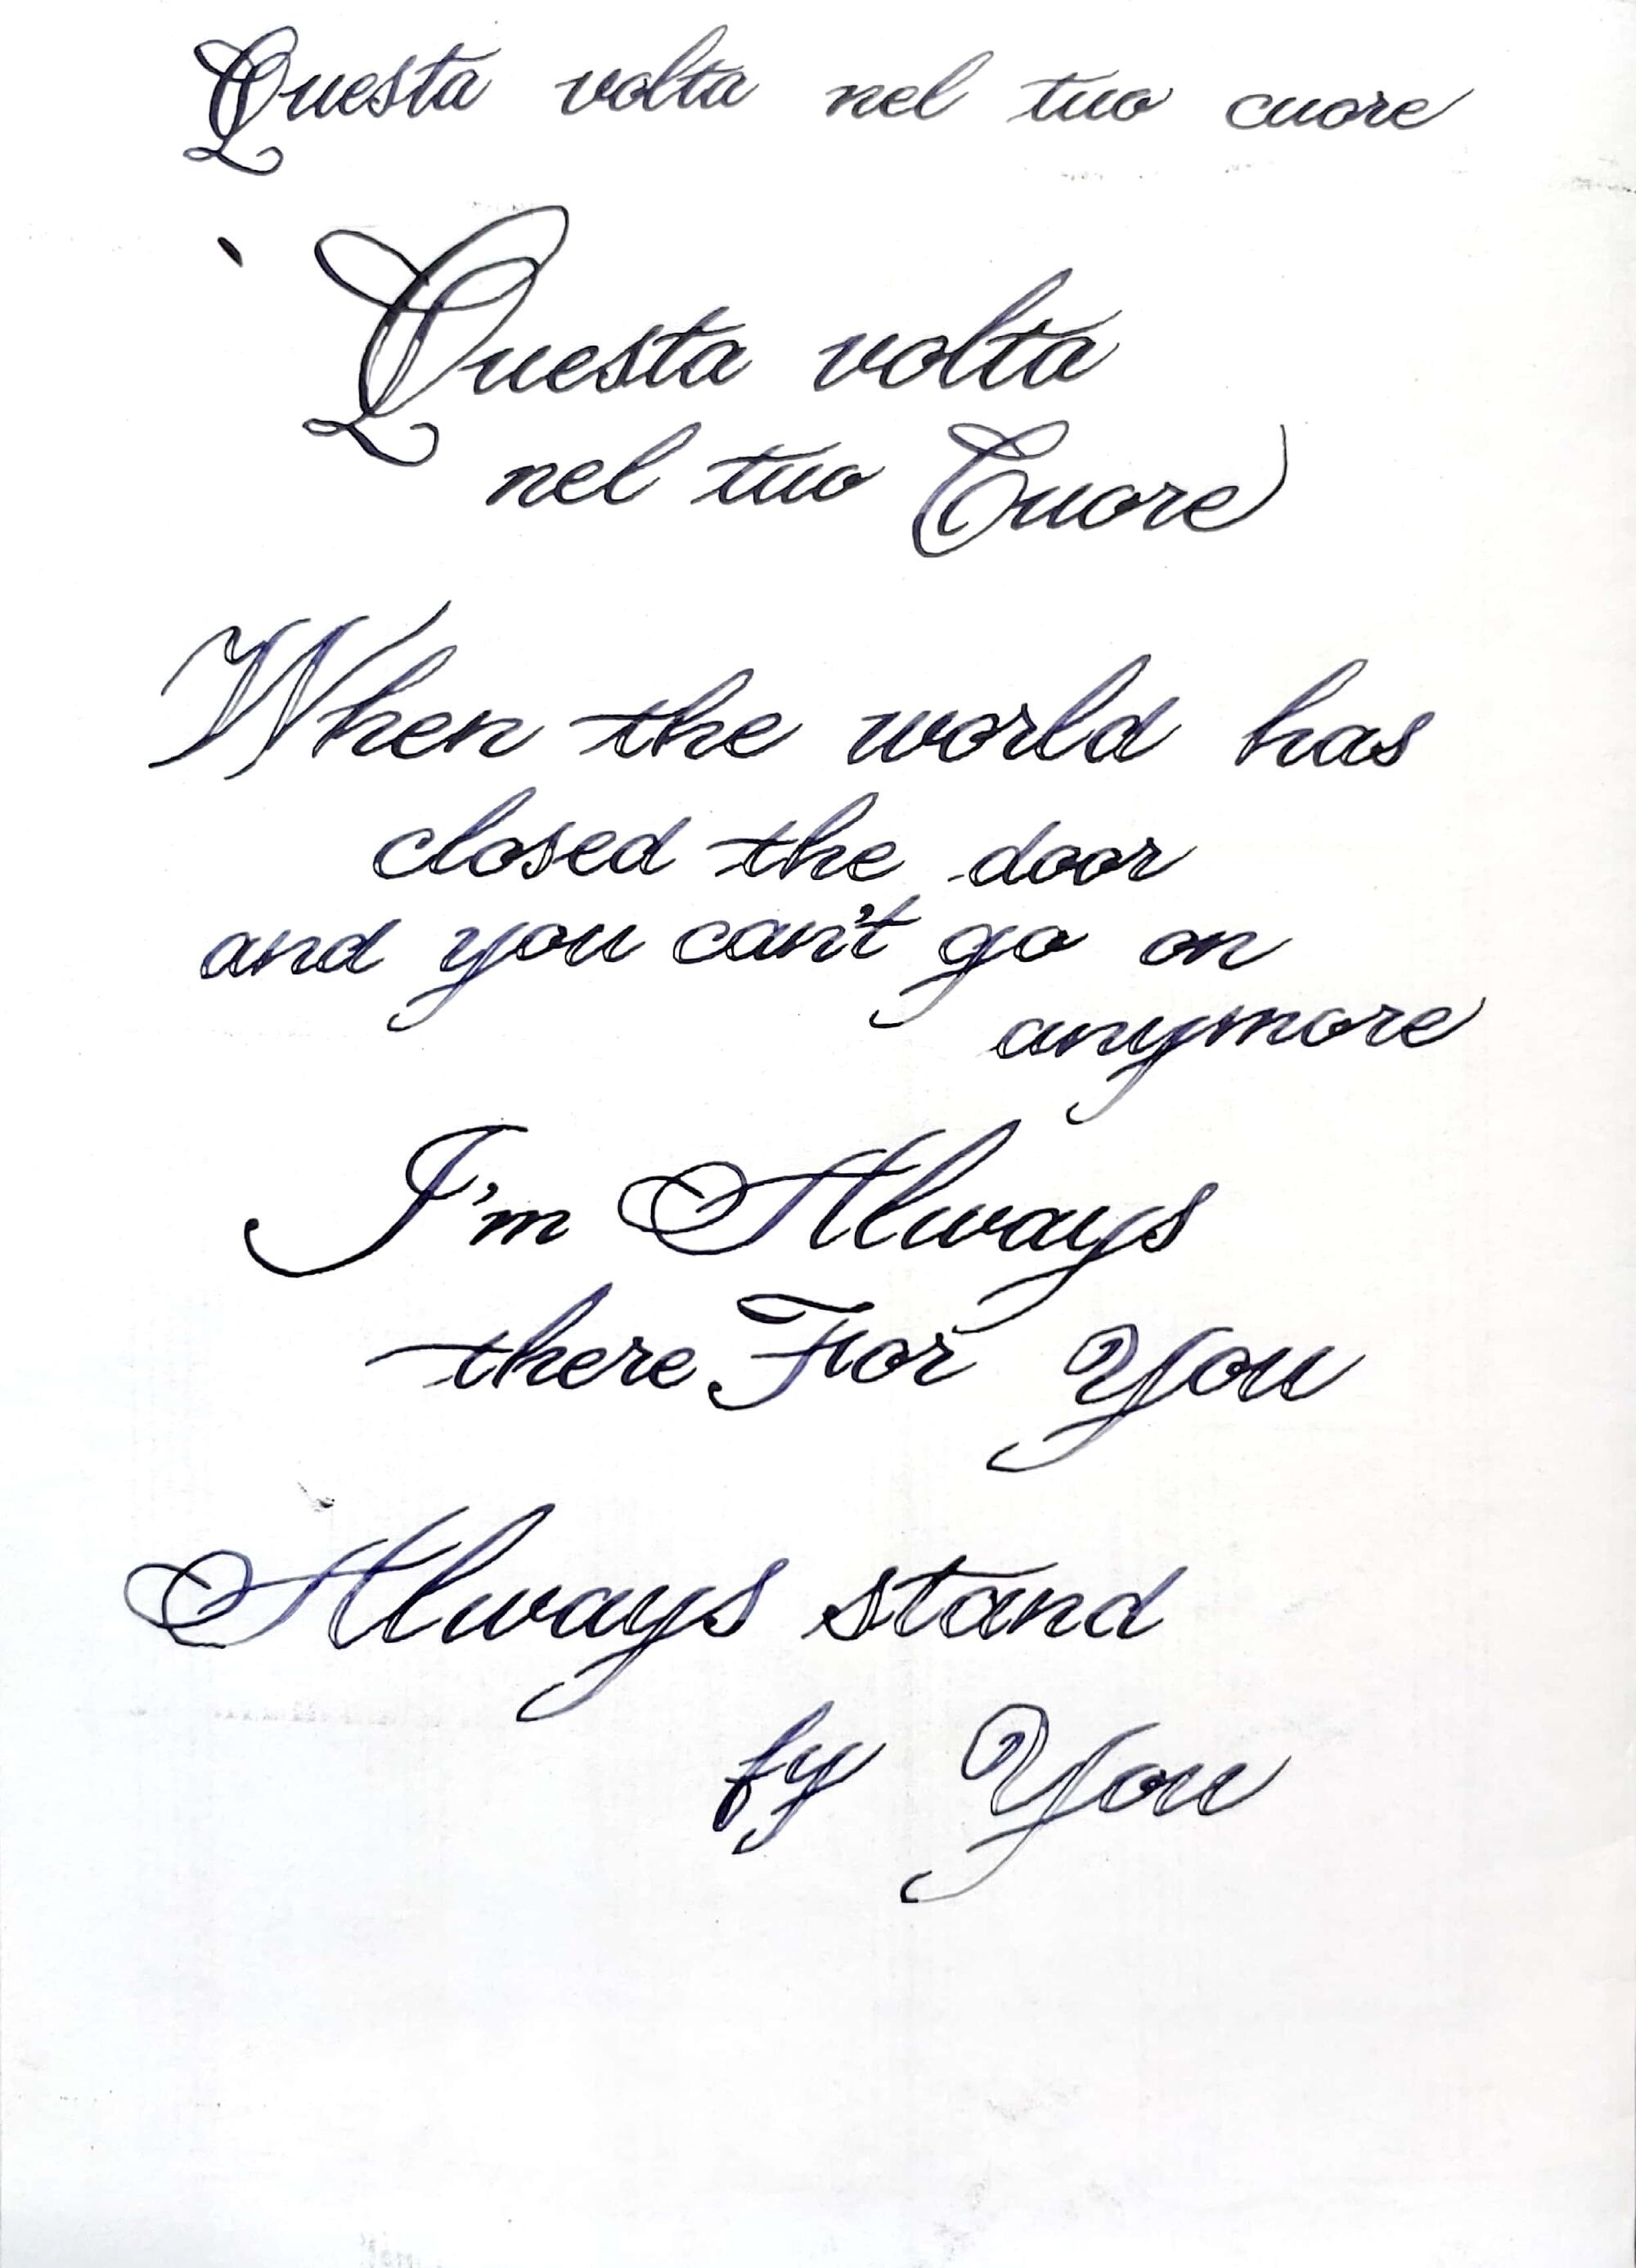 Questa volta nel tuo cuore
Questa volta
nel tuo Cuore
When the world has
closed the door
and you can't go on
anymore
I'm Always
there For You
Always stand
by You